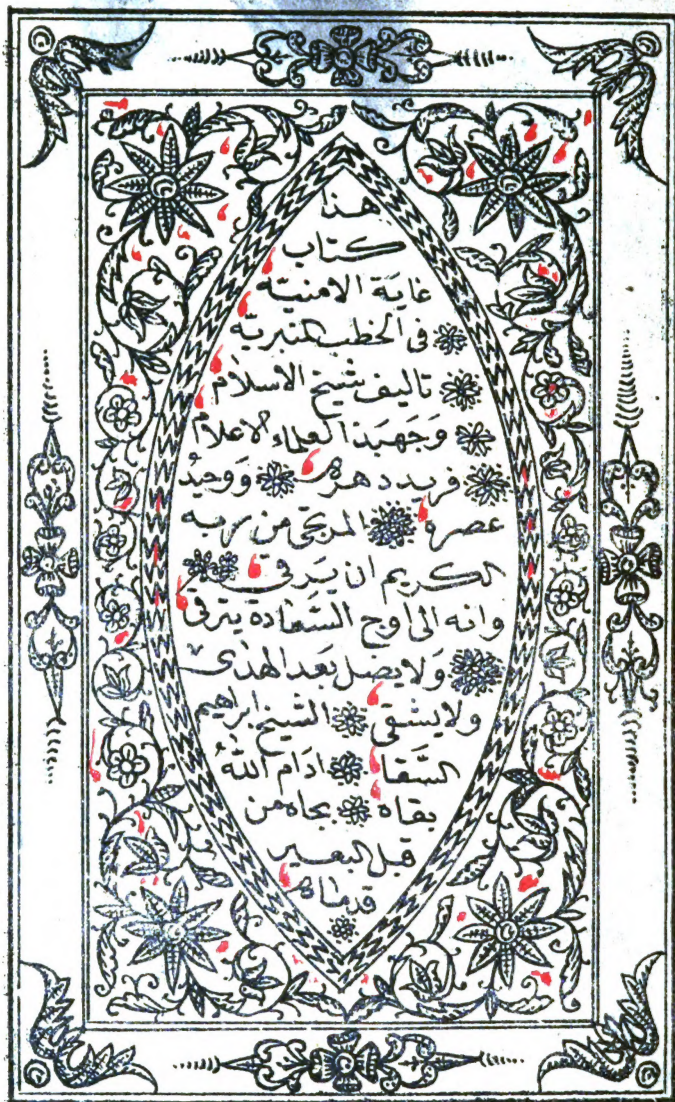 هذا
كتاب
غاية الامنيته
فى الخطب المنبريه
تاليف شيخ الاسلام
وجهبذ العلماء الاعلام
فريد دهره ووحيد
عصره المرتجى من ربه
الكريم ان يرقى
وانه الى اوج السعادة يترقى
ولا يضل بعد الهدى
ولا يشقى الشيخ ابراهيم
السقا ادام الله
بقاه بجاه من
قبل البعير
قدماه